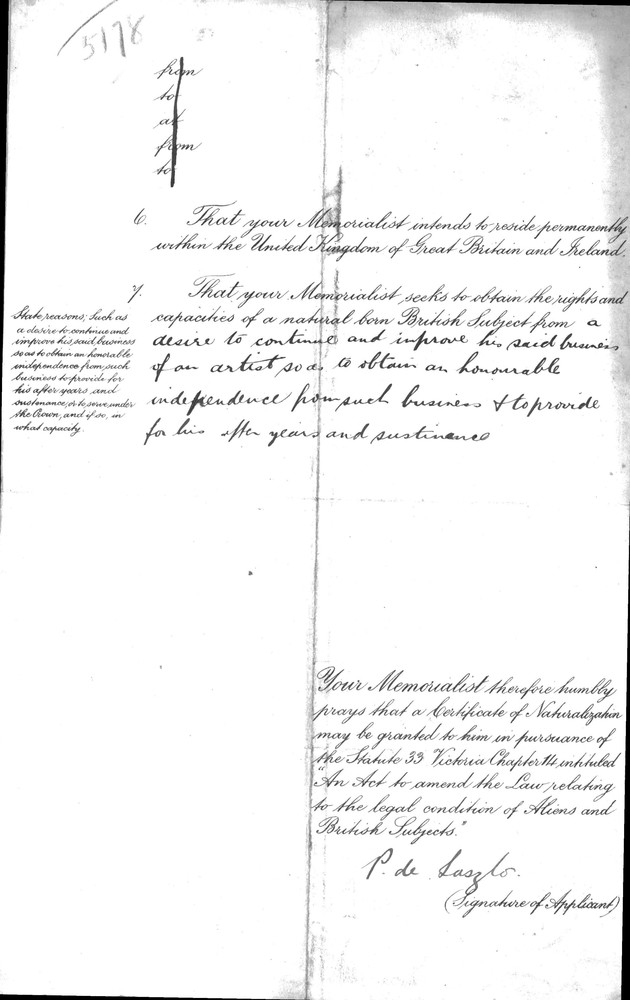 5178
from
to
at
from
to
6. That your Memorialist intends to reside permanently
within the United Kingdom of Great Britain and Ireland.
7. That your Memorialist, seeks to obtain the rights and
capacities of a natural born British Subject from a
desire to continue and improve his said business
of an artist so as to obtain an honourable
independence from such business & to provide
for his after years and sustinence
State reasons; Such as
a desire to continue and
improve his said business
so as to obtain an honorable
independence from such
business to provide for
his after years and
sustenance, or to serve under
the Crown, and if so, in
what capacity.
Your Memorialist therefore humbly
prays that a Certificate of Naturalization
may be granted to him in pursuance of
the Statute 33 Victoria Chapter 14 intituled
"An Act to amend the Law relating
to the legal condition of Aliens and
British Subjects."
P. de Laszlo.
(Signature of Applicant)